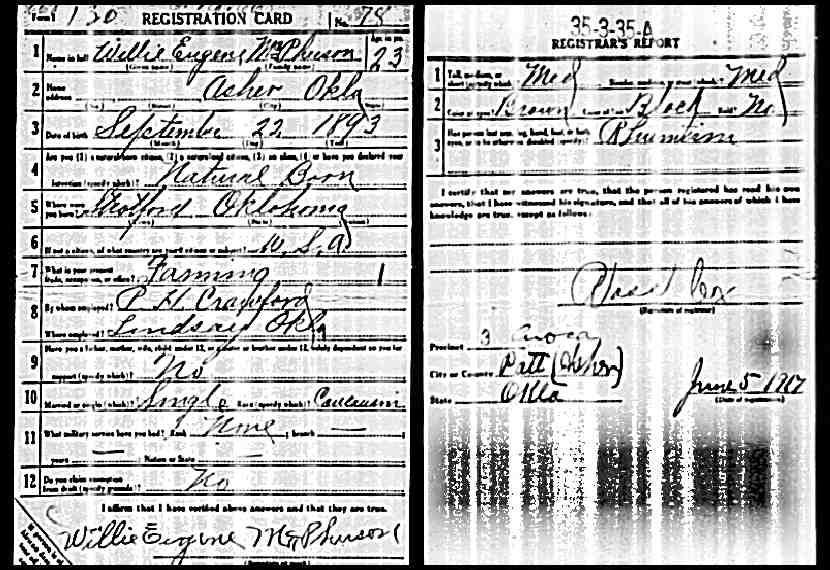 Form 1 130 REGISTRATION CARD No. 78
1 Name in full Willie Eugene McPherson Age, in yrs. 23
(Given name) (Family name)
2 Home address Asher Okla
(No.) (Street) (City) (State)
3 Date of birth September 22 1893
(Month) (Day) (Year)
Are you (1) a natural-born citizen, (2) a naturalized citizen, (3) an alien, (4) or have you declared your
4 intention (specify which)? Natural Born
5 Where were you born? Oklahoma
6 If not a citizen, of what country are you a citizen or subject? U.S.A
7 What is your present trade, occupation, or office? Farming 1
8 By whom employed? P. H. Crawford
Where employed? Lindsay Okla
Have you a father, mother, wife, child under 12, or a sister or brother under 12, solely dependent on you for
9 support (specify which)? No
10 Married or single (which)? Single Race (specify which)? Caucasian
11 What military service have you had? Rank None ; branch —
years — ; Nation or State —
12 Do you claim exemption from draft (specify grounds)? No
I affirm that I have verified above answers and that they are true.
Willie Eugene McPherson
(Signature or mark)
35-3-35-A
REGISTRAR'S REPORT
1 Tall, medium, or short (specify which)? Med Slender, medium, or stout (which)? Med
2 Color of eyes? Brown Color of hair? Black Bald? No
3 Has person lost arm, leg, hand, foot, or both eyes, or is he otherwise disabled (specify)?
I certify that my answers are true, that the person registered has read his own
answers, that I have witnessed his signature, and that all of his answers of which I have
knowledge are true, except as follows:
(Signature of registrar)
Precinct 3
City or County Pott (Asher)
State Okla June 5 1917
(Date of registration)